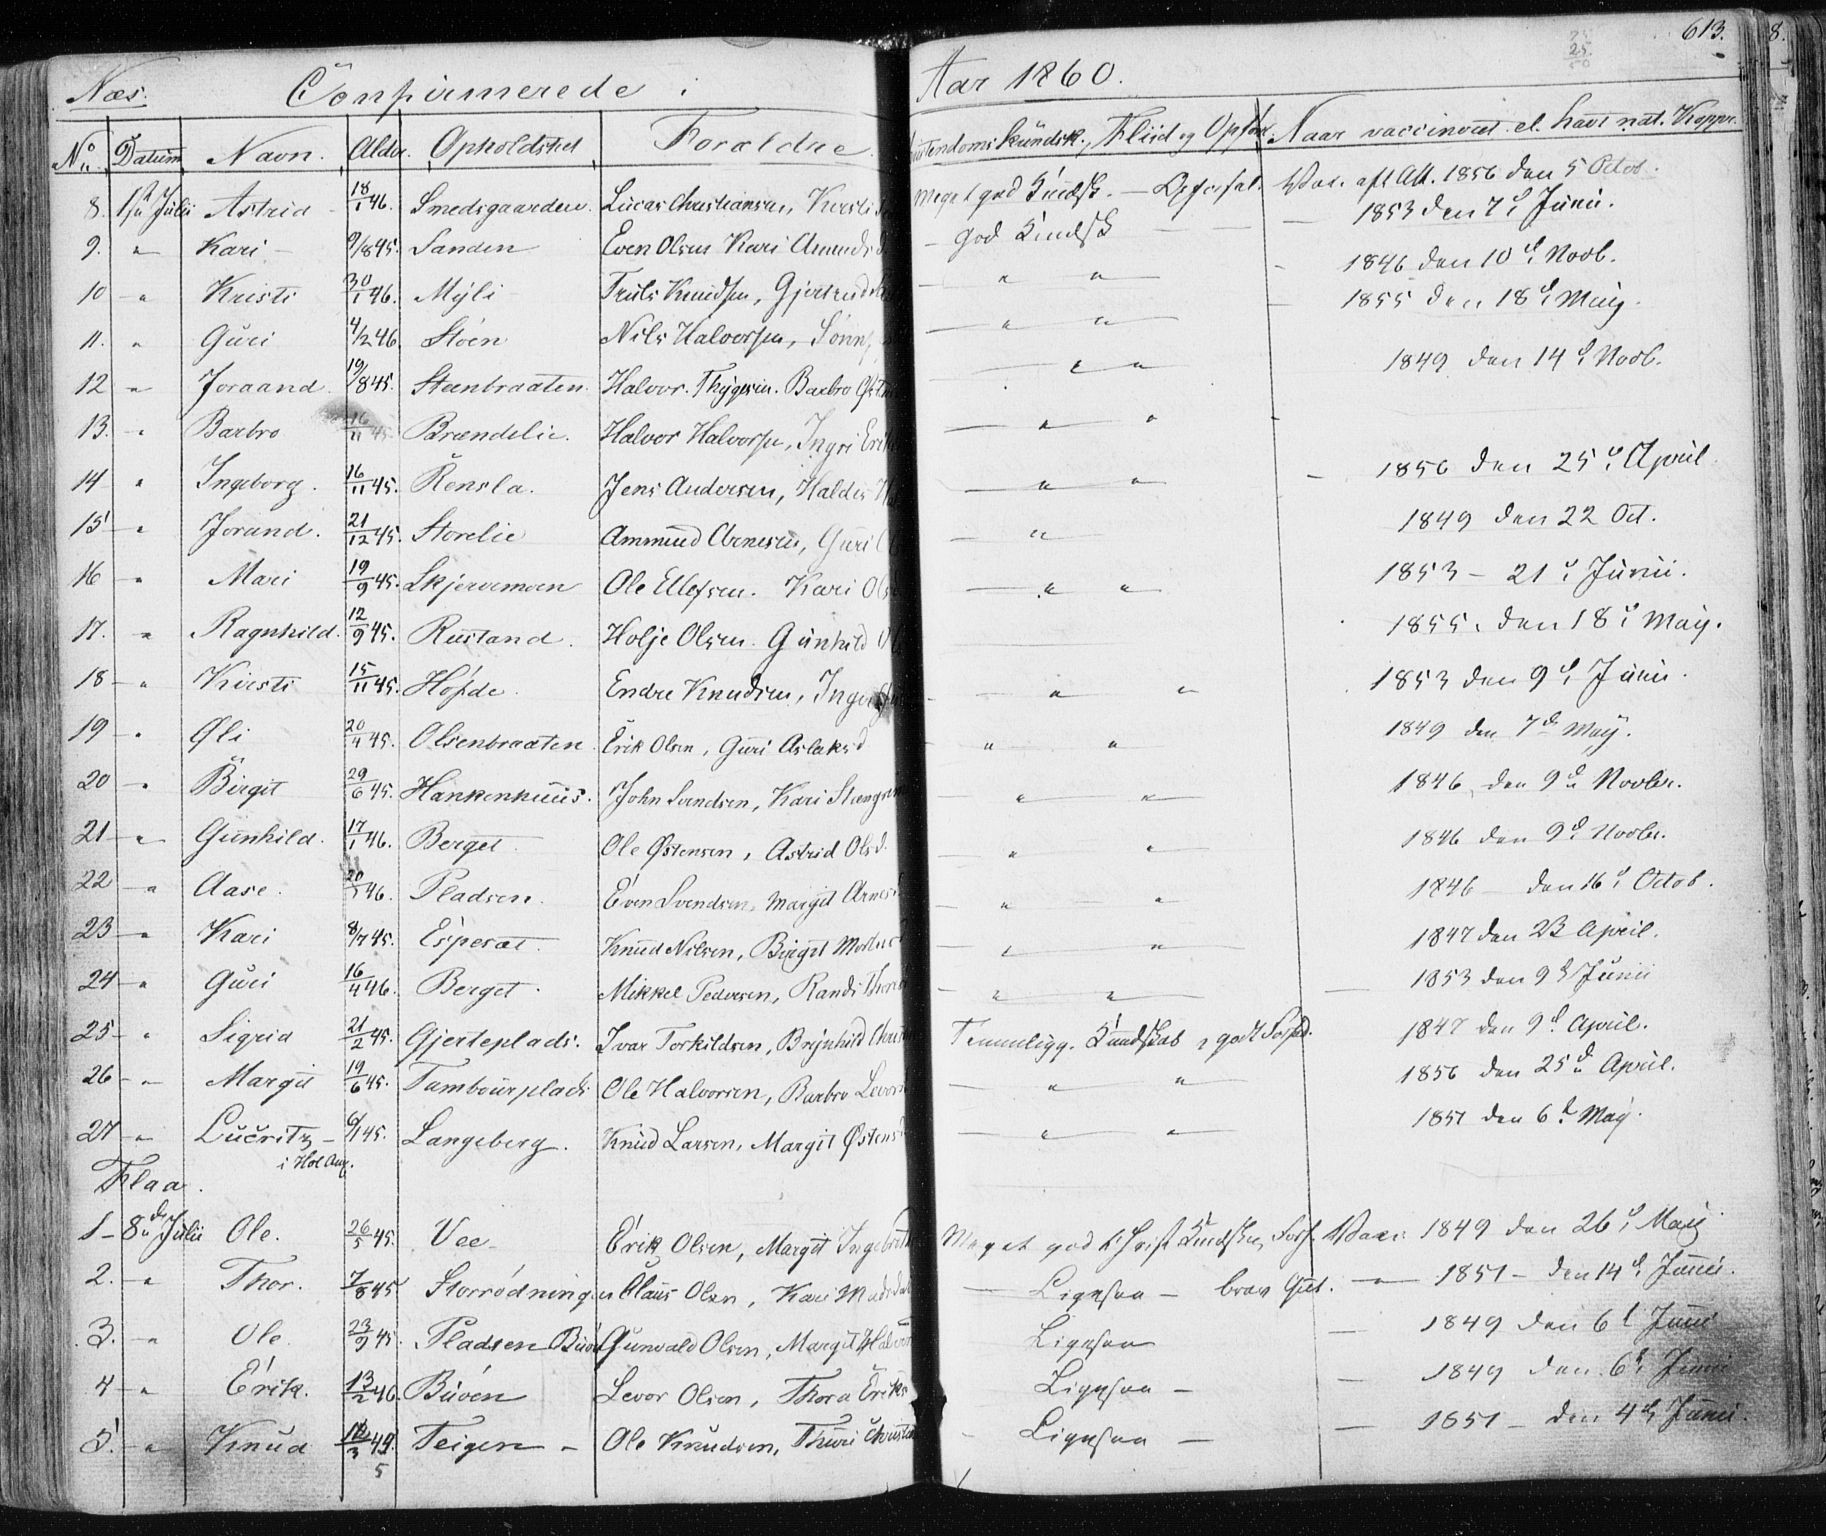 613.
Næs. Confirmerede i Aar 1860.
No. Datum Navn. Alder. Opholdsted Forældre Kundsk., Fliid og Opför. Naar vaccineret el. havt nat. Kopper.
8. 1ste Julii Astrid 18/1 46. Smedsgaarden. Lucas Christiansen, Kirsti Meget god Kundsk. — Vac. aft Att. 1856 den 5 Octob.
9. " Kari 9/8 45. Sanden Even Olsen Kari Amunds d. God Kundsk — 1853 den 7d. Junii.
10 " Kristi 30/1 46. Myli Truls Knudsen, Gjertrud " " - 1846 den 10d. Novb.
11. " Guri 4/2 46. Stöen Nils Halvorsen, " " — 1855 den 18d. May.
12 " Joraand 19/8 45. Steenbraaten. Halvor Thygesen. Barbro " " 1849 den 14d. Novb.
13. " Barbro 16/11 45 Brændelie. Halvor Halvorsen, Ingri " " -
14 " Ingeborg. 16/11 45. Rensla. Jens Andersen, Haldis " " - 1856 den 25d. April.
15 " Jorand. 21/12 45. Storelie Ammund Arnesen, Guri " 1849 den 22 Oct.
16 " Mari 19/9 45. Skjervemoen Ole Ellefsen. Kari " " 1853 – 21d. Junii.
17. " Ragnhild. 12/9 45. Rustand. Holje Olsen. Gunhild 1855. den 18d. May.
18 " Kirsti 15/11 45. Höfde. Endre Knudsen, " " 1853 den 9d. Junii.
19 " Øli 20/4 45. Olsenbraaten. Erik Olsen, Guri Aslaks d " " 1849 den 7de May.
20 " Birgit 29/6 45. Hankenhuus. John Svendsen, Kari " " 1846, den 9d. Novbr.
21 " Gunhild. 17/1 46. Berget. Ole Østensen, Astrid Ols d. " " 1846 den 9d. Novbr.
22 " Aase. 20/1 46. Pladsen. Even Svendsen, Margit " " 1846 – den 16d. Octob.
23 " Kari 8/7 45. Espesæt. Knud Nilsen, Birgit " " 1847 den 23 April.
24 " Guri 16/4 46. Berget. Mikkel Pedersen, Randi " " — 1853 den 9d. Junii
25 " Sigrid 21/2 45. Gjerteplads. Ivar Torkildsen, Brynhild Temmelig. Kundskab, godt Forhd. 1847 den 9d. April.
26 " Margit 19/6 45. Tambourplads Ole Halvorsen, Barbro " " 1856 den 25d. April.
27 " Lucritz 6/1 45. Langeberg. Knud Larsen, Margit " " 1851 den 6d. May.
i Hol Anx.
Flaa.
1 8de Julii Ole. 26/5 45. Vee Erik Olsen, Margit Meget god Christ Kundskab, Forh. Vacc. 1849 den 26d. May
2. " Thor. 7/8 45 Storrödningen Claus Olsen, Kari Ligesaa – brav Gut. — 1851 – den 14d. Junii.
3. " Ole. 23/9 45. Pladsen Gunvald Olsen, Margit Ligesaa — 1849 den 6d Junii
4 " Erik. 13/2 46. Buvén Levor Olsen, Thora Ligesaa – — 1849 den 6d. Junii
5. " Knud Teigen – Ole Knudsen, Thuri Ligesaa – — 1851 – den 4d. Junii.
5